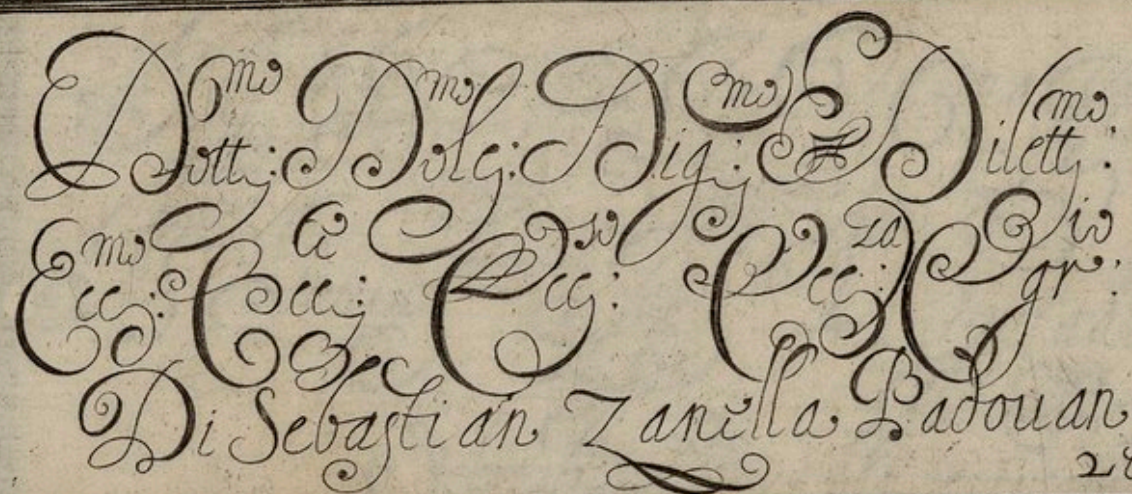 Dott:mo Dolc:mo Dig:mo E Dilett:mo
Ecc:mo Ecc: Ecc:so Ecc:za Egr:io
Di Sebastian Zanella Padouan